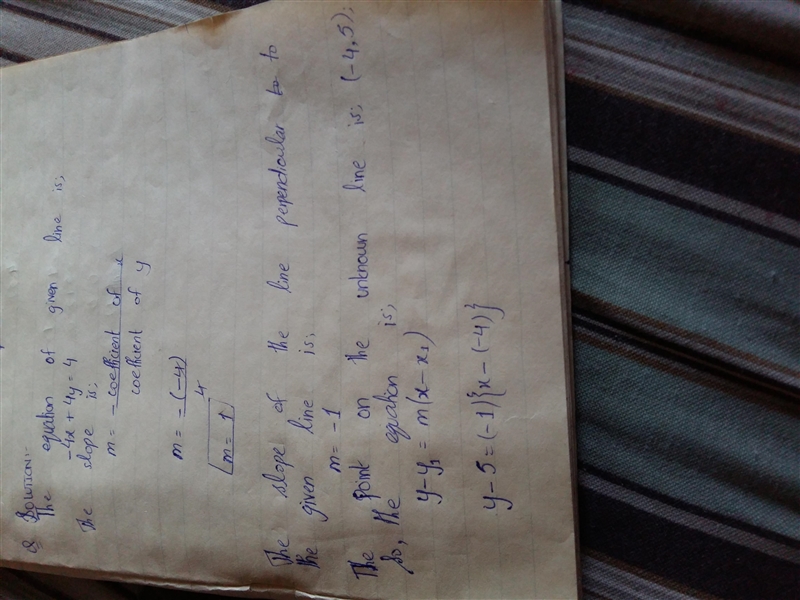 Solution:-
The equation of given line is;
-4x + 4y = 4
The slope is;
m = - coefficient of x
coefficient of y
m = -(-4)
4
m = 1
The slope of the line perpendicular to to
the given line is;
m = -1
The point on the unknown line is; (-4,5);
So, the equation is;
y-y₁ = m(x-x₁)
y-5 = (-1){x-(-4)}